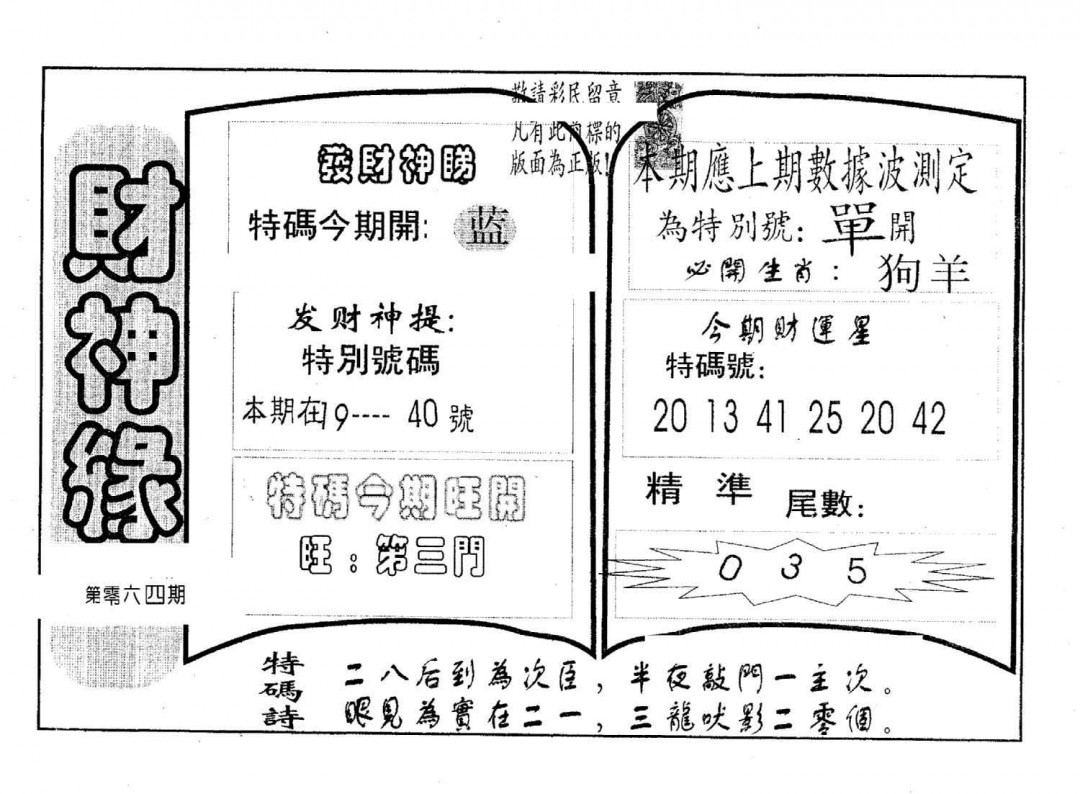 財神緣
第零六四期
敬請彩民留意
凡有此商標的
版面為正版!
發財神睇
特碼今期開: 蓝
发财神提:
特別號碼
本期在9---- 40 號
特碼今期旺開
旺:第三門
本期應上期數據波測定
為特別號: 單開
必開生肖: 狗羊
今期財運星
特碼號:
20 13 41 25 20 42
精 準 尾數:
0 3 5
特碼詩
二八后到為次臣,半夜敲門一主次。
眼見為實在二一,三龍吠影二零個。